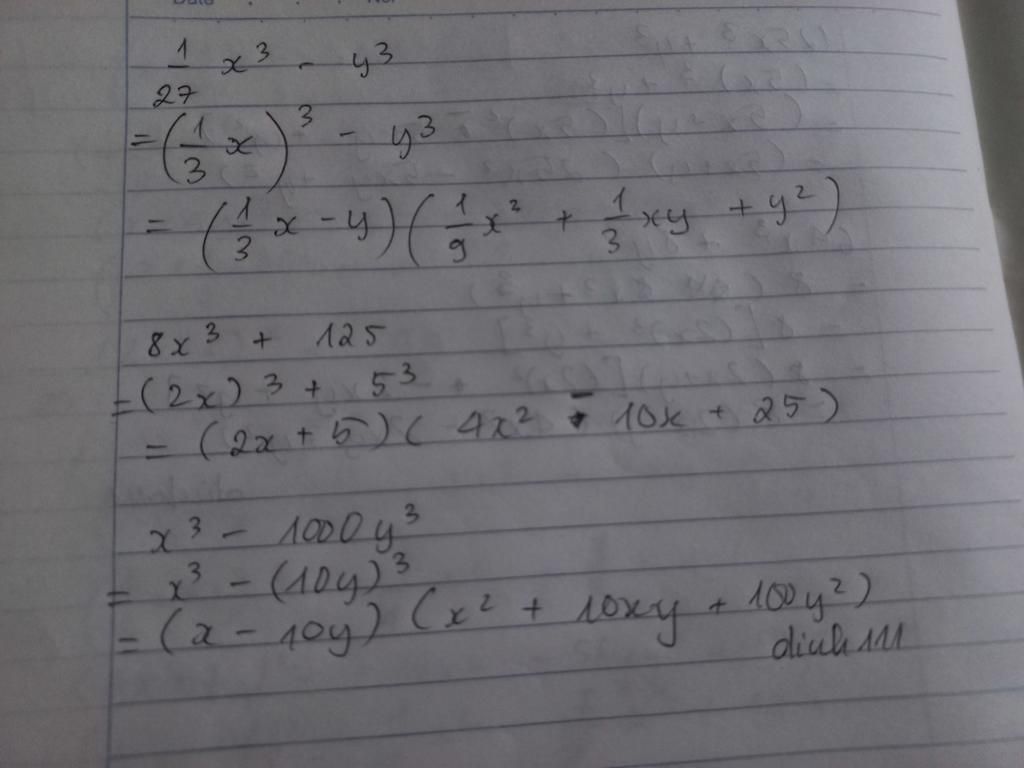 1/27 x³ - y³
= (1/3 x)³ - y³
= (1/3 x - y)(1/9 x² + 1/3 xy + y²)
8x³ + 125
= (2x)³ + 5³
= (2x + 5)(4x² - 10x + 25)
x³ - 1000y³
= x³ - (10y)³
= (x - 10y)(x² + 10xy + 100y²)